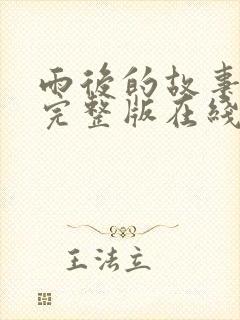 雨後的故事
完整版在綫
王法立